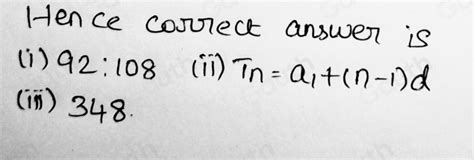 Hence correct answer is
(i) 92:108 (ii) Tn = a1+(n-1)d
(iii) 348.